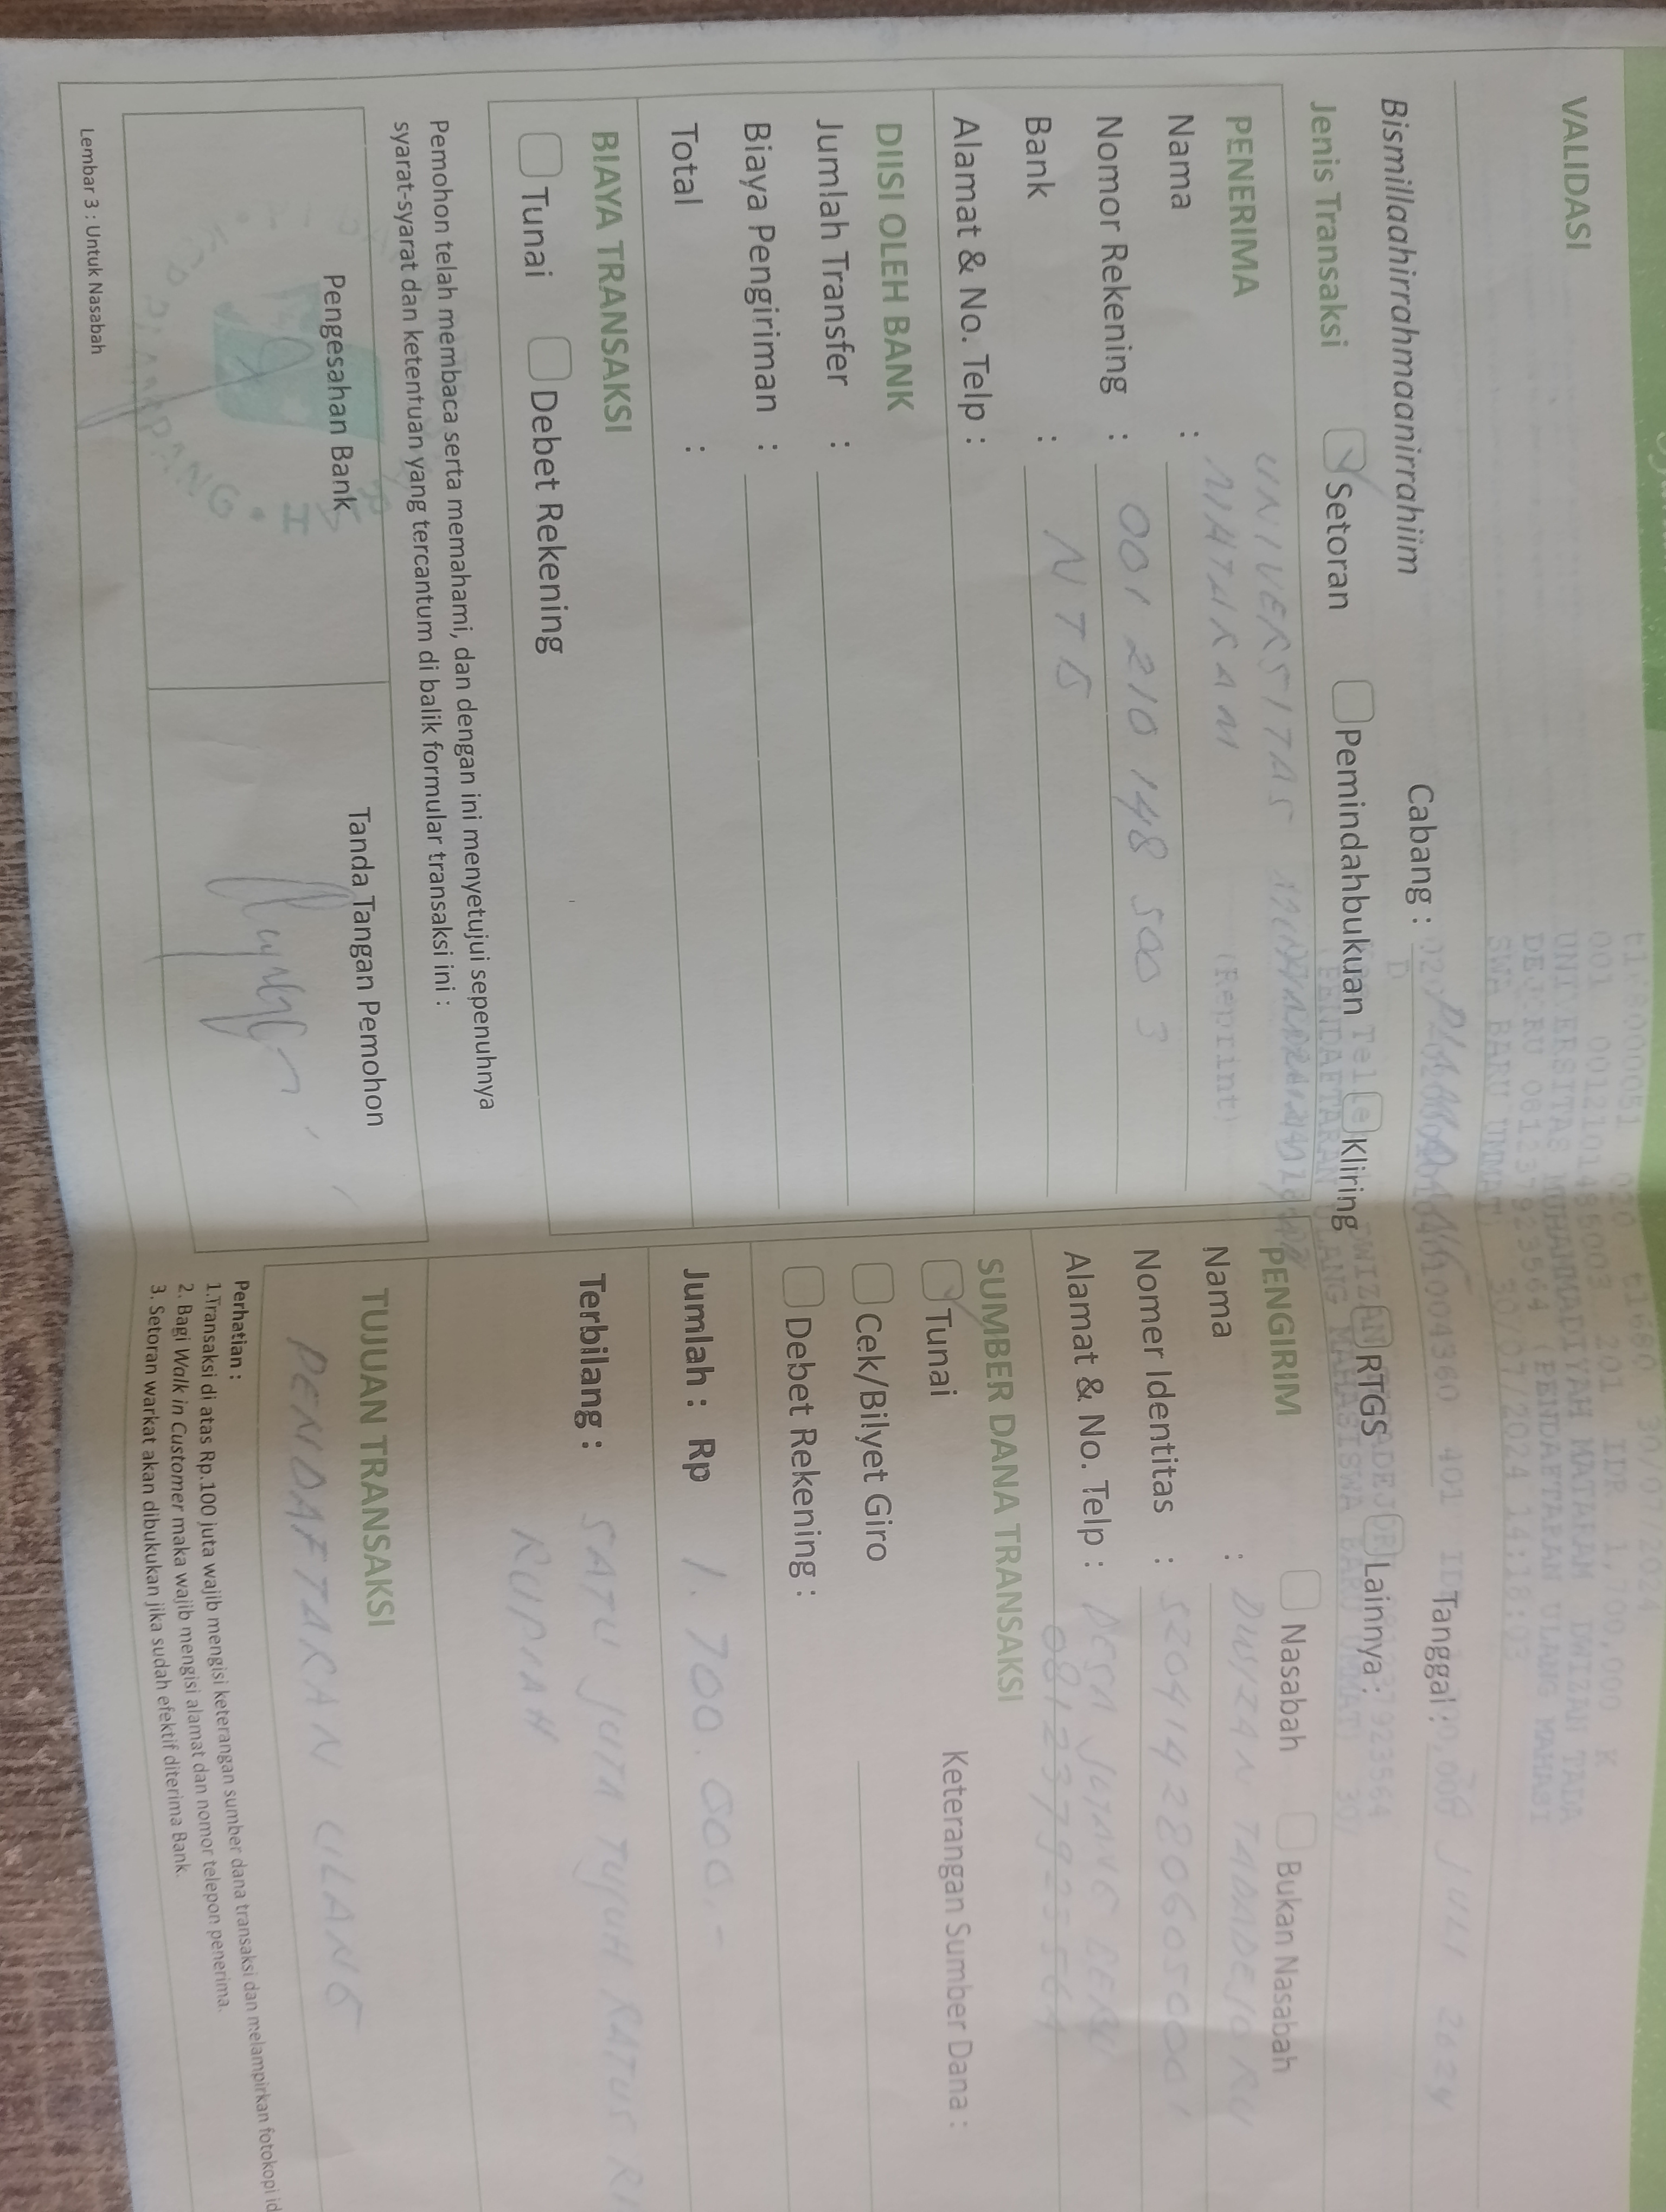 VALIDASI
30/07/2024
001 0012101485003 201 IDR 1,700,000 K
UNIVERSITAS MUHAMMADIYAH MATARAM DWIZAN TADA
DEJURU 081237923564 (PENDAFTARAN ULANG MAHASI
SWA BARU UMMAT) 30/07/2024 14:18:03
Bismillaahirrahmaanirrahiim
Cabang :
Tanggal : 30 JULI 2024
Jenis Transaksi
Setoran
Pemindahbukuan
Kliring
RTGS
Lainnya :
PENERIMA
Nama : UNIVERSITAS
MATARAM
(Reprint)
Nomor Rekening : 001 210 148 500 3
Bank : NTB
Alamat & No. Telp :
PENGIRIM
Nasabah
Bukan Nasabah
Nama : DWIZAN TADADEJURU
Nomer Identitas : 5204142806050001
Alamat & No. Telp : DESA
081237923564
DIISI OLEH BANK
Jumlah Transfer :
Biaya Pengiriman :
Total :
SUMBER DANA TRANSAKSI
Tunai
Keterangan Sumber Dana :
Cek/Bilyet Giro
Debet Rekening :
BIAYA TRANSAKSI
Tunai
Debet Rekening
Jumlah : Rp 1.700.000,-
Terbilang : SATU JUTA TUJUH RATUS RI
RUPIAH
Pemohon telah membaca serta memahami, dan dengan ini menyetujui sepenuhnya
syarat-syarat dan ketentuan yang tercantum di balik formular transaksi ini :
Pengesahan Bank
Tanda Tangan Pemohon
TUJUAN TRANSAKSI
PENDAFTARAN ULANG
Perhatian :
1.Transaksi di atas Rp.100 juta wajib mengisi keterangan sumber dana transaksi dan melampirkan fotokopi id
2. Bagi Walk in Customer maka wajib mengisi alamat dan nomor telepon penerima.
3. Setoran warkat akan dibukukan jika sudah efektif diterima Bank.
Lembar 3 : Untuk Nasabah